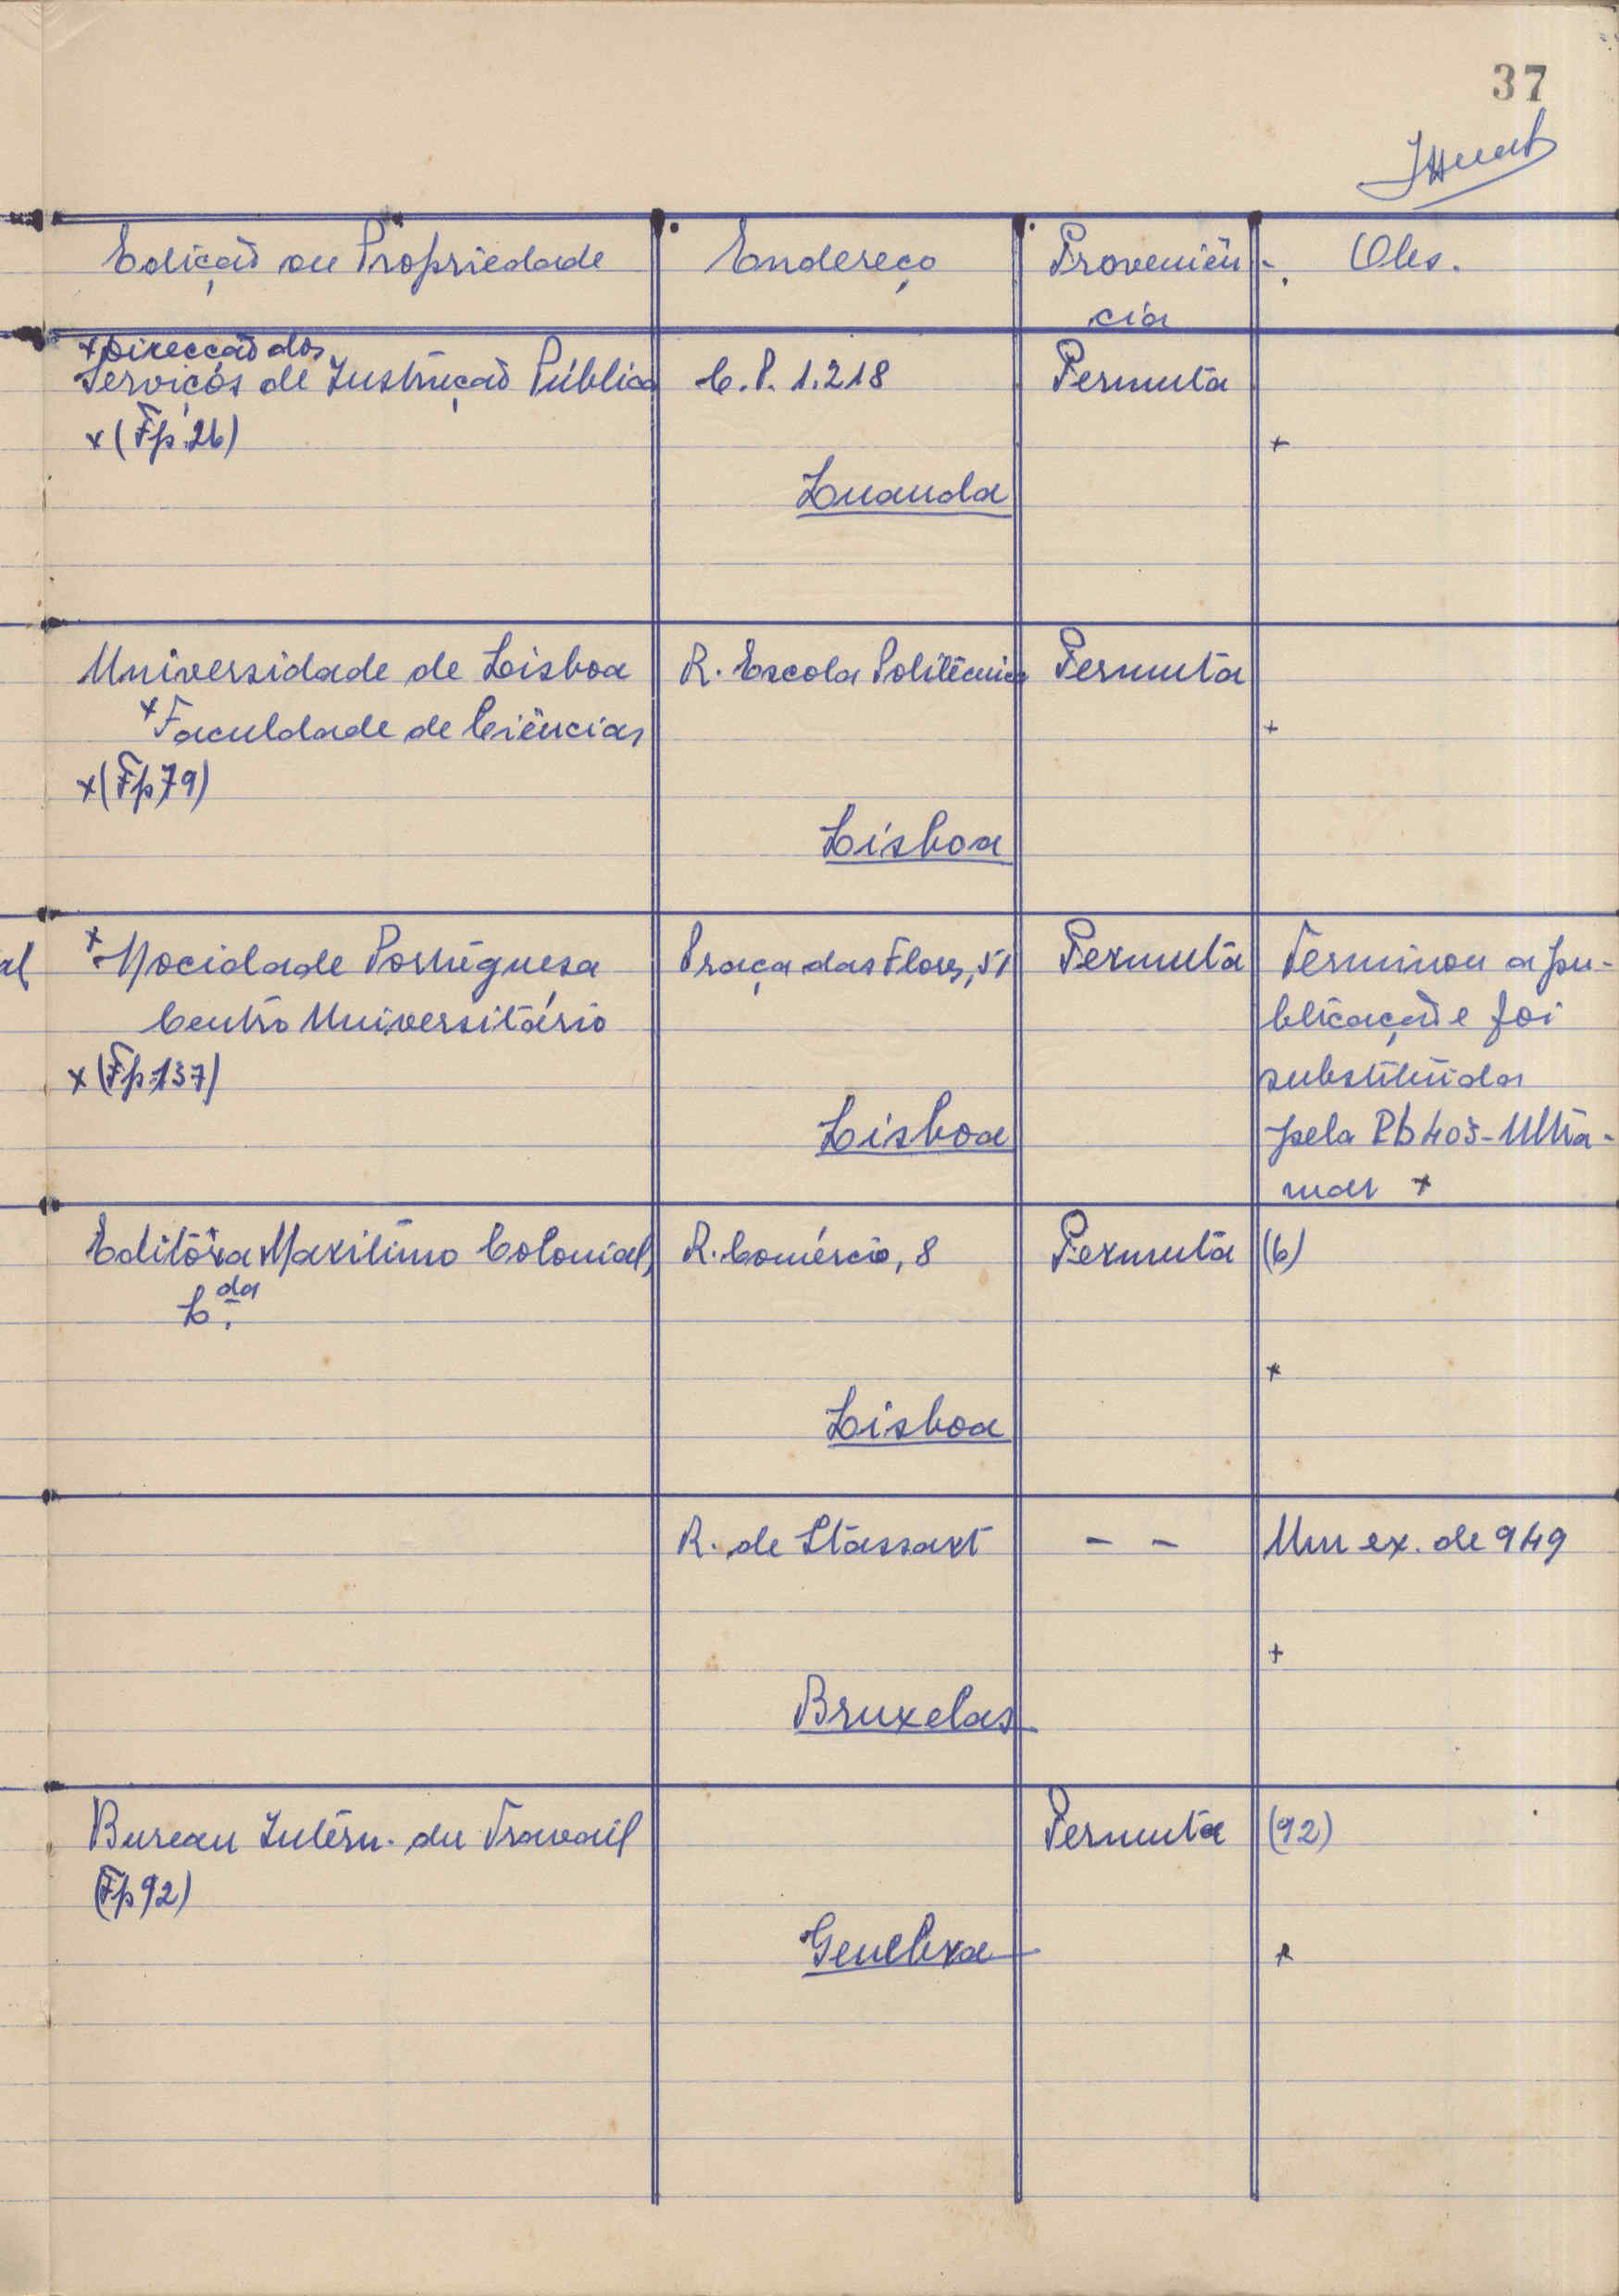 37
Edição ou Propriedade Endereço Proveniên- Obs.
cia
+Direcção dos
Serviços de Instrução Pública C.P. 1.218 Permuta
x (Fp 26) +
Luanda
Universidade de Lisboa R. Escola Politécnica Permuta
+Faculdade de Ciências +
x (Fp 79)
Lisboa
al + Mocidade Portuguesa Praça das Flores, 51 Permuta Terminou a pu-
Centro Universitário blicação e foi
x (Fp 137) substituída
Lisboa pela Pb 403-Ultra-
mar +
Editôra Marítimo Colonial, R. Comércio, 8 Permuta (6)
L.da
+
Lisboa
R. de Stassart - - Um ex. de 949
+
Bruxelas
Bureau Intern. du Travail Permuta (92)
(Fp 92)
Genebra +